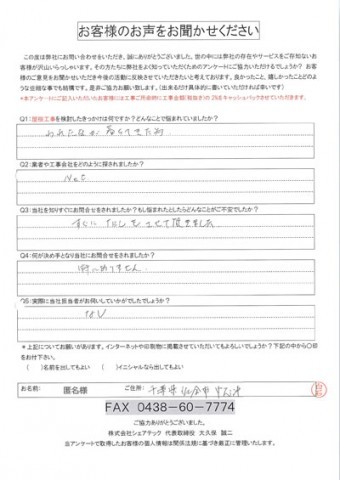 お客様のお声をお聞かせください
この度は弊社にお問い合わせをいただき、誠にありがとうございました。世の中には弊社の存在やサービスをご存知ないお
客様が沢山いらっしゃいます。その方たちに弊社をよく知っていただくためのアンケートにご協力いただけるでしょうか? お客
様のご意見をお聞かせいただき今後の活動に反映させていただきたいと考えております。良かったこと、嬉しかったことどのよ
うな些細な事でも結構です。是非ご協力お願い致します。(出来るだけ具体的に書いていただければ幸いです)
*本アンケートにご記入いただいたお客様には工事ご用命時に工事金額(税抜き)の2%をキャッシュバックさせていただきます。
Q1:屋根工事を検討したきっかけは何ですか?どんなことで悩まれていましたか?
Q2:業者や工事会社をどのように探されましたか?
Net
Q3:当社を知りすぐにお問合せをされましたか?もし悩まれたとしたらどんなことがご不安でしたか?
すぐに TELをさせて頂きました
Q4:何が決め手となり当社にお問合せをされましたか?
特にありません
Q5:実際に当社担当者がお伺いしていかがでしたでしょうか?
*上記についてお願いがあります。インターネットや印刷物に掲載させていただいてもよろしいでしょうか?下記の中から〇印
をお付下さい。
( )名前を出してもよい ( )イニシャルなら出してもよい
お名前: 匿名様 ご住所: 千葉県
FAX 0438-60-7774
ご協力ありがとうございました。
株式会社シェアテック 代表取締役 大久保 誠二
当アンケートで取得したお客様の個人情報は関係法規に基づき厳正に管理いたします。